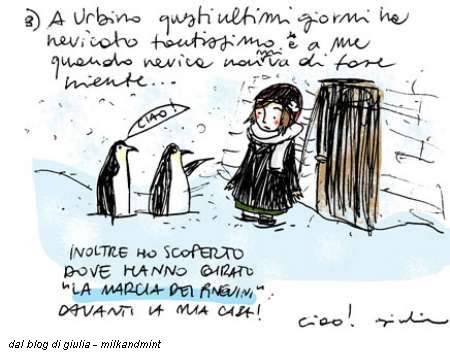 3) A Urbino questi ultimi giorni ha
nevicato tantissimo, e a me
quando nevica non mi va di fare
niente...
CIAO!
INOLTRE HO SCOPERTO
DOVE HANNO GIRATO
"LA MARCIA DEI PINGUINI"
DAVANTI LA MIA CASA!
ciao! giulia
dal blog di giulia - milkandmint